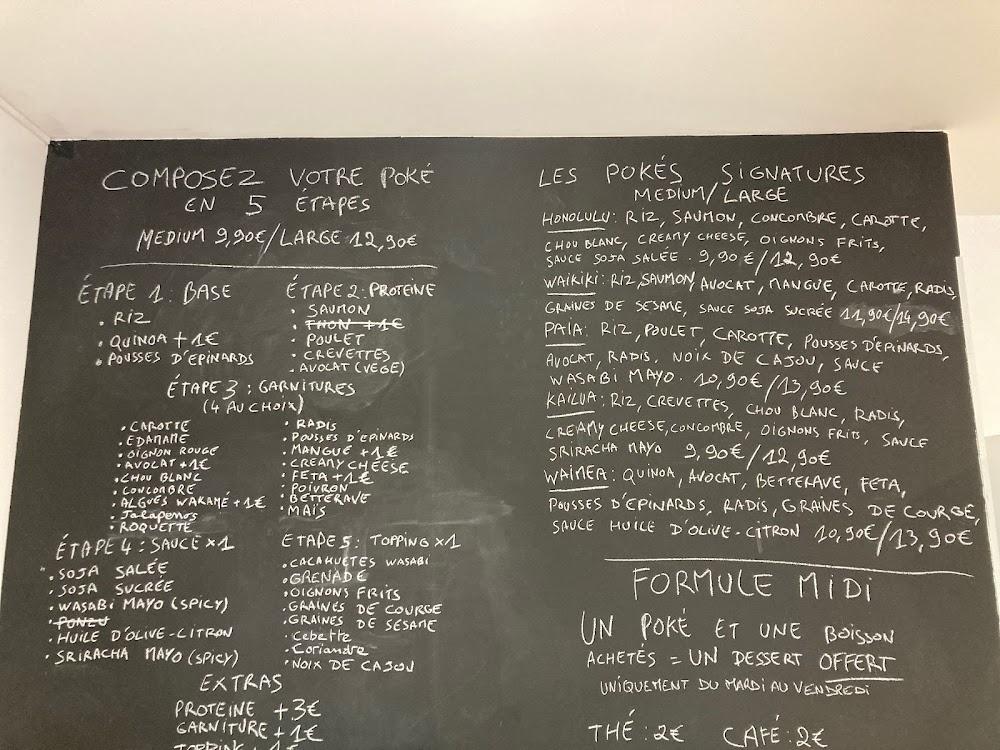 COMPOSEZ VOTRE POKÉ
EN 5 ÉTAPES
MEDIUM 9,90€/LARGE 12,90€
ÉTAPE 1 : BASE
• RIZ
• QUINOA + 1€
• POUSSES D'EPINARDS
ÉTAPE 2 : PROTEINE
• SAUMON
• THON + 1€
• POULET
• CREVETTES
• AVOCAT (VEGE)
ÉTAPE 3 : GARNITURES
(4 AU CHOIX)
• CAROTTE
• EDAMAME
• OIGNON ROUGE
• AVOCAT + 1€
• CHOU BLANC
• CONCOMBRE
• ALGUES WAKAMÉ + 1€
• Jalapenos
• ROQUETTE
• RADIS
• POUSSES D'EPINARDS
• MANGUE + 1€
• CREAMY CHEESE
• FETA + 1€
• POIVRON
• BETTERAVE
• MAÏS
ÉTAPE 4 : SAUCE X1
• SOJA SALÉE
• SOJA SUCRÉE
• WASABI MAYO (SPICY)
• PONZU
• HUILE D'OLIVE - CITRON
• SRIRACHA MAYO (SPICY)
ETAPE 5 : TOPPING X1
• CACAHUETES WASABI
• GRENADE
• OIGNONS FRITS
• GRAINES DE COURGE
• GRAINES DE SESAME
• Cebette
• Coriandre
• NOIX DE CAJOU
EXTRAS
PROTEINE + 3€
GARNITURE + 1€
TOPPING + 1€
LES POKÉS SIGNATURES
MEDIUM/LARGE
HONOLULU : RIZ, SAUMON, CONCOMBRE, CAROTTE,
CHOU BLANC, CREAMY CHEESE, OIGNONS FRITS,
SAUCE SOJA SALÉE. 9,90€/12,90€
WAIKIKI : RIZ, SAUMON, AVOCAT, MANGUE, CAROTTE, RADIS,
GRAINES DE SESAME, SAUCE SOJA SUCRÉE 11,90€/14,90€
PAIA : RIZ, POULET, CAROTTE, POUSSES D'EPINARDS,
AVOCAT, RADIS, NOIX DE CAJOU, SAUCE
WASABI MAYO. 10,90€/13,90€
KAILUA : RIZ, CREVETTES, CHOU BLANC, RADIS,
CREAMY CHEESE, CONCOMBRE, OIGNONS FRITS, SAUCE
SRIRACHA MAYO 9,90€/12,90€
WAIMEA : QUINOA, AVOCAT, BETTERAVE, FETA,
POUSSES D'EPINARDS, RADIS, GRAINES DE COURGE,
SAUCE HUILE D'OLIVE - CITRON 10,90€/13,90€
FORMULE MIDI
UN POKÉ ET UNE BOISSON
ACHETÉS = UN DESSERT OFFERT
UNIQUEMENT DU MARDI AU VENDREDI
THÉ : 2€ CAFÉ : 2€